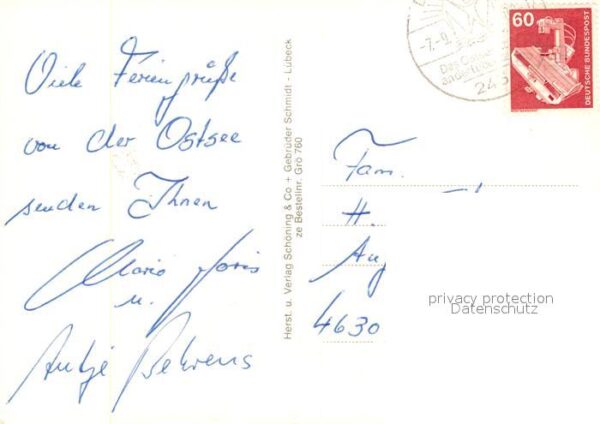 Viele Feriengrüße
von der Ostsee
senden Ihnen
Mario Joris
u.
Antje Behrens
Herst. u. Verlag Schöning & Co + Gebrüder Schmidt - Lübeck
ze Bestellnr. Grö 760
-7.-9.
Das
243
60
DEUTSCHE BUNDESPOST
Fam.
H.
Au
4630
privacy protection
Datenschutz